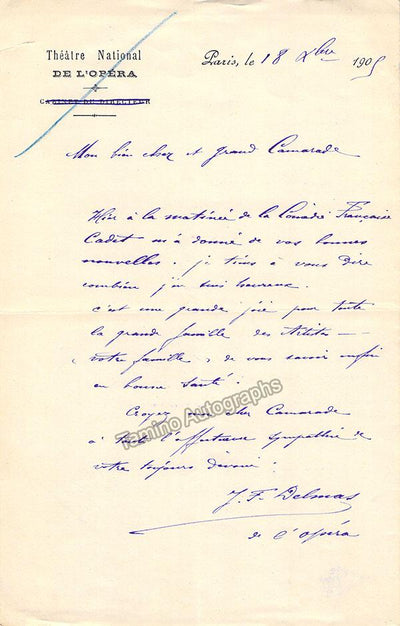 Théâtre National
DE L'OPÉRA
CABINET DU DIRECTEUR
Paris, le 18 Xbre 1905
Mon bien cher et grand Camarade
Hier à la matinée de la Comédie Française
Cadet m'a donné de vos bonnes
nouvelles. je tiens à vous dire
combien j'en suis heureux.
c'est une grande joie pour toute
la grande famille des Artistes —
votre famille, de vous savoir enfin
en bonne santé.
Croyez mon cher Camarade
à toute l'affectueuse sympathie de
votre toujours dévoué.
J. F. Delmas
de l'opéra
Tamino Autographs